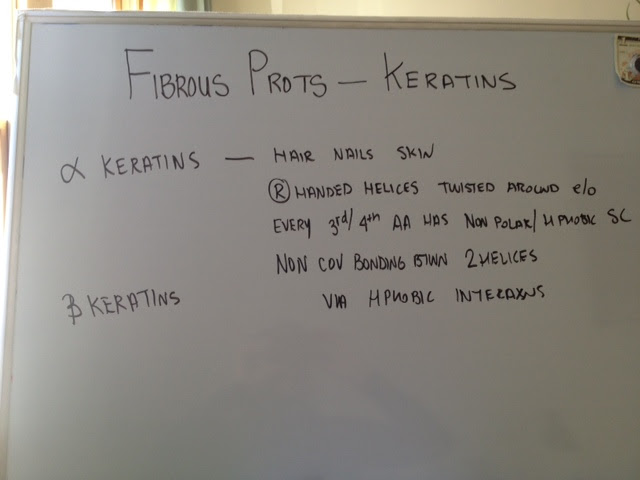 FIBROUS PROTS — KERATINS
α KERATINS — HAIR NAILS SKIN
Ⓡ HANDED HELICES TWISTED AROUND e/o
EVERY 3rd/4th AA HAS NON POLAR/HPHOBIC SC
NON COV BONDING BTWN 2 HELICES
β KERATINS VIA HPHOBIC INTERAXNS